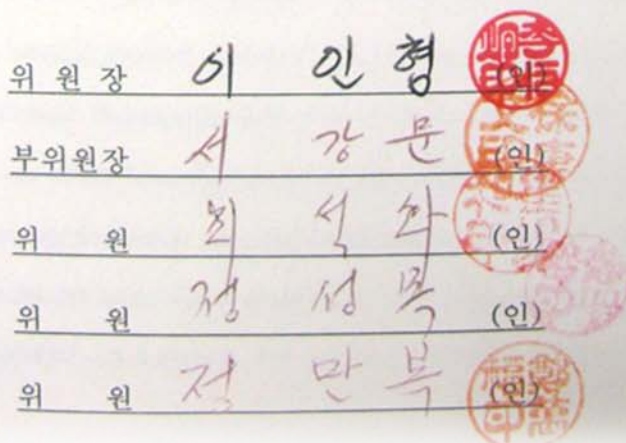 위 원 장 이 인 형 (인)
부위원장 서 강 문 (인)
위 원 최 석 화 (인)
위 원 정 성 목 (인)
위 원 정 만 복 (인)